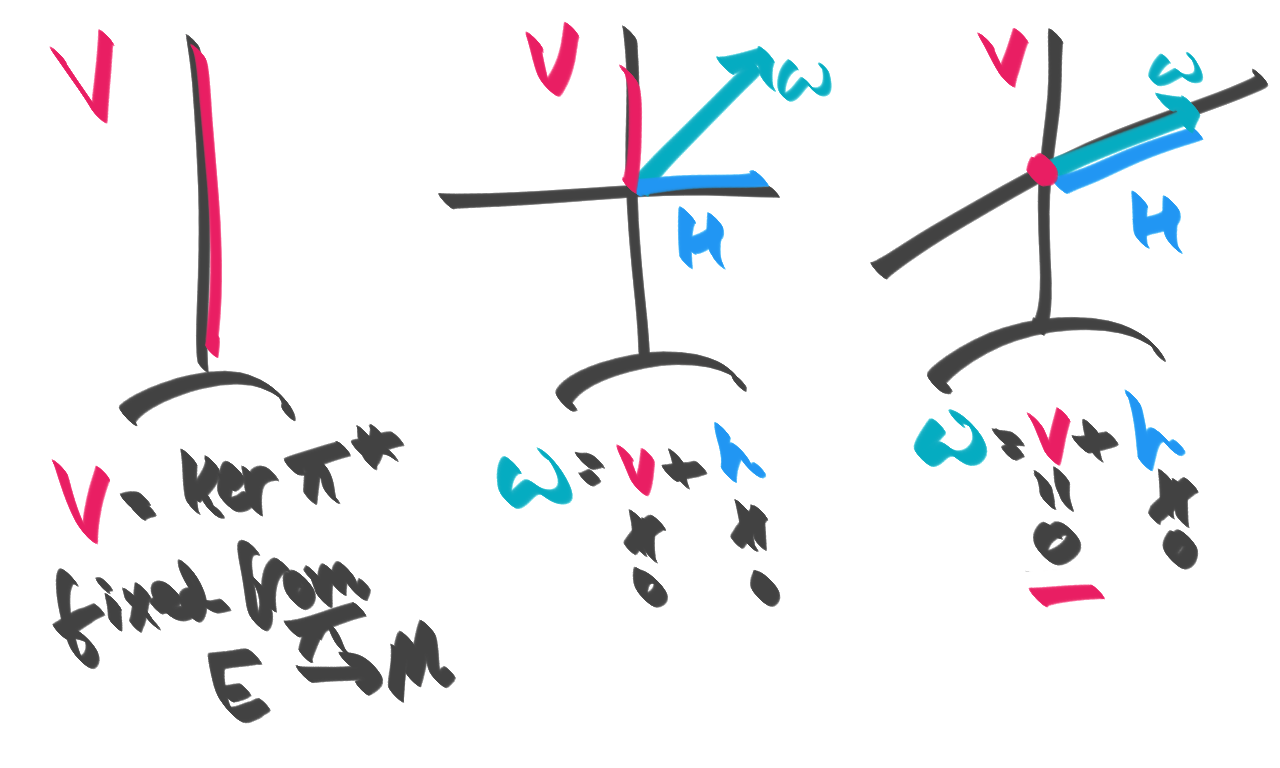 V
V = ker π*
fixed from
E →π M
V
ω
H
ω = v + h
≠ ≠
0 0
V
ω
H
ω = v + h
= ≠
0 0